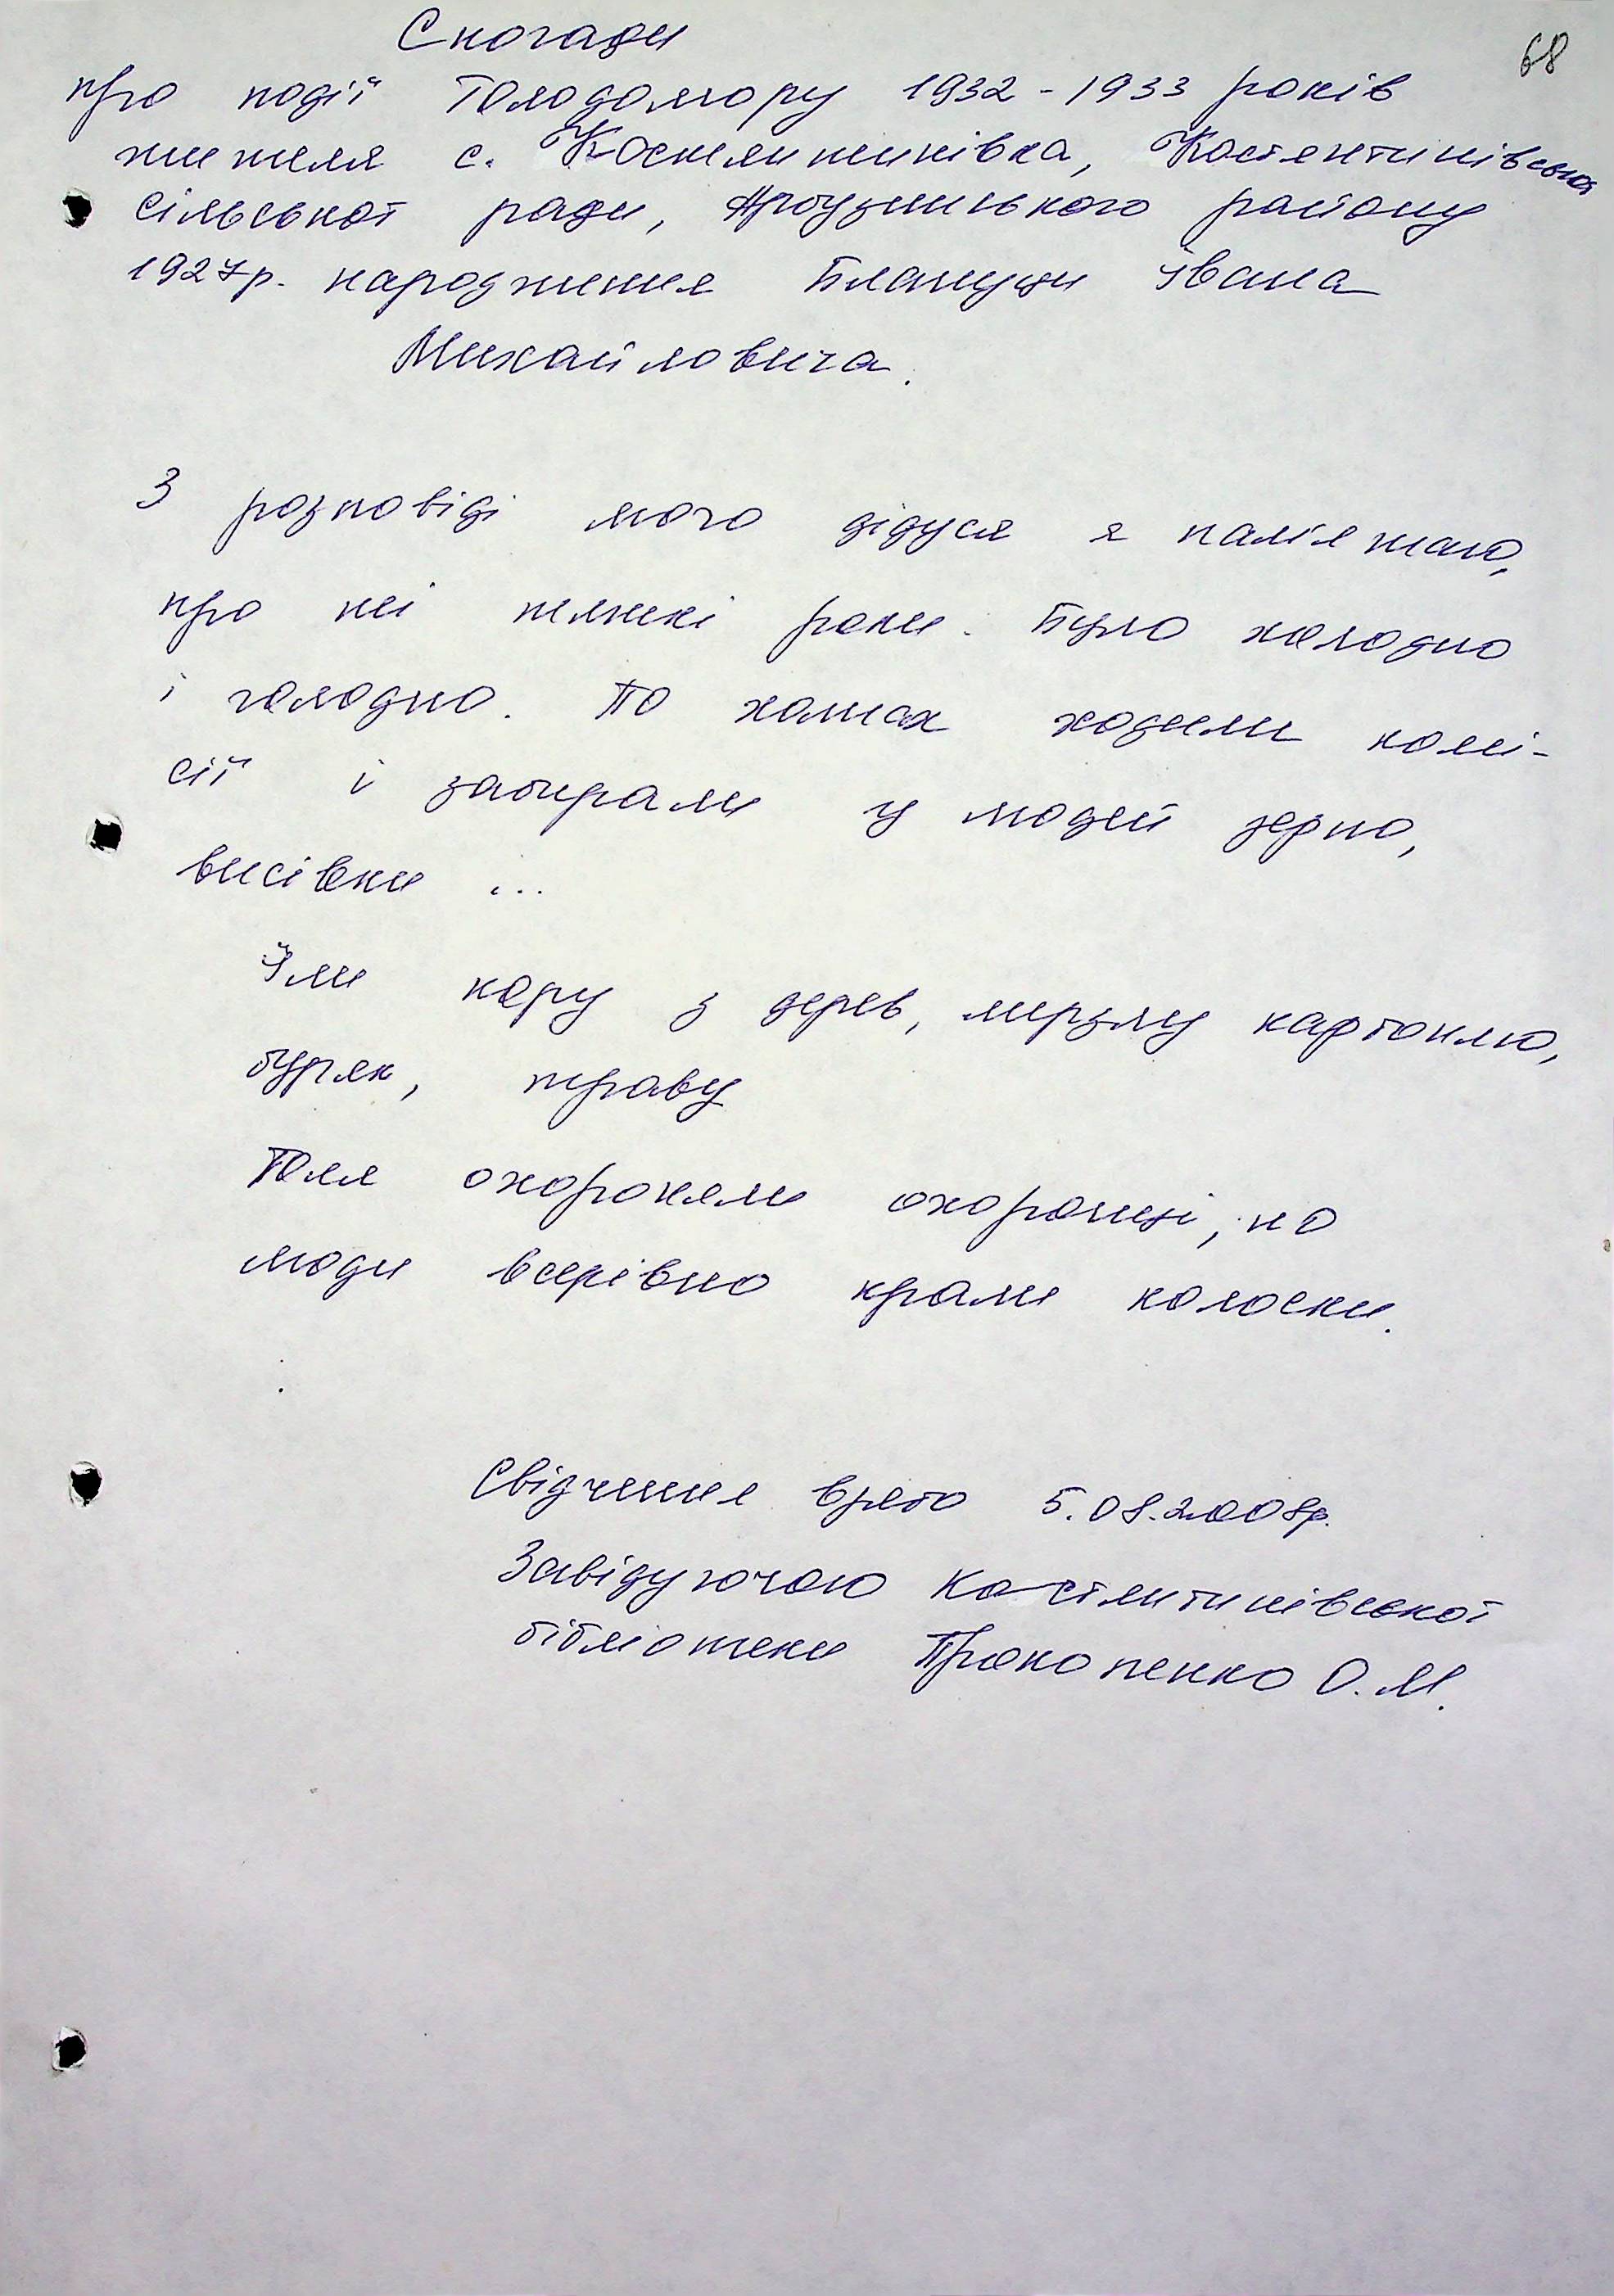 68
Спогади
про події Голодомору 1932-1933 років
жителя с. Костянтинівка, Костянтинівської
сільської ради, Арбузинського району
1927р. народження Блануци Івана
Михайловича.
З розповіді мого дідуся я пам'ятаю,
про ці тяжкі роки. Було холодно
і голодно. По хатах ходили комі-
сії і забирали у людей зерно,
висівки ...
Їли кору з дерев, мерзлу картоплю,
буряк, траву
Поля охороняли охоронці, но
люди всерівно крали колоски.
Свідчення взято 5.08.2008р.
Завідуючою Костянтинівської
бібліотеки Прокопенко О.М.